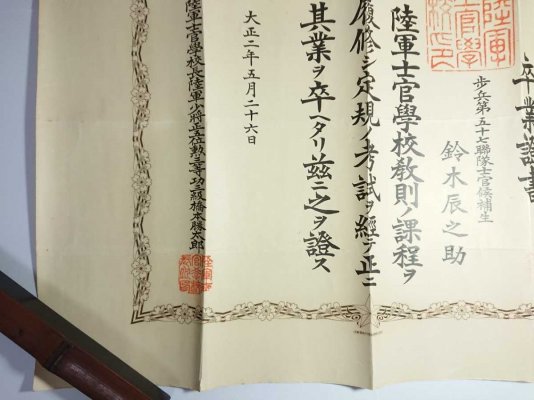 卒業證書
陸軍士官學校印
步兵第五十七聯隊士官候補生
鈴木辰之助
陸軍士官學校敎則ノ課程ヲ
履修シ定規ノ考試ヲ經テ正ニ
其業ヲ卒ヘタリ茲ニ之ヲ證ス
大正二年五月二十六日
陸軍士官學校長陸軍少將正五位勲三等功三級橋本勝太郎